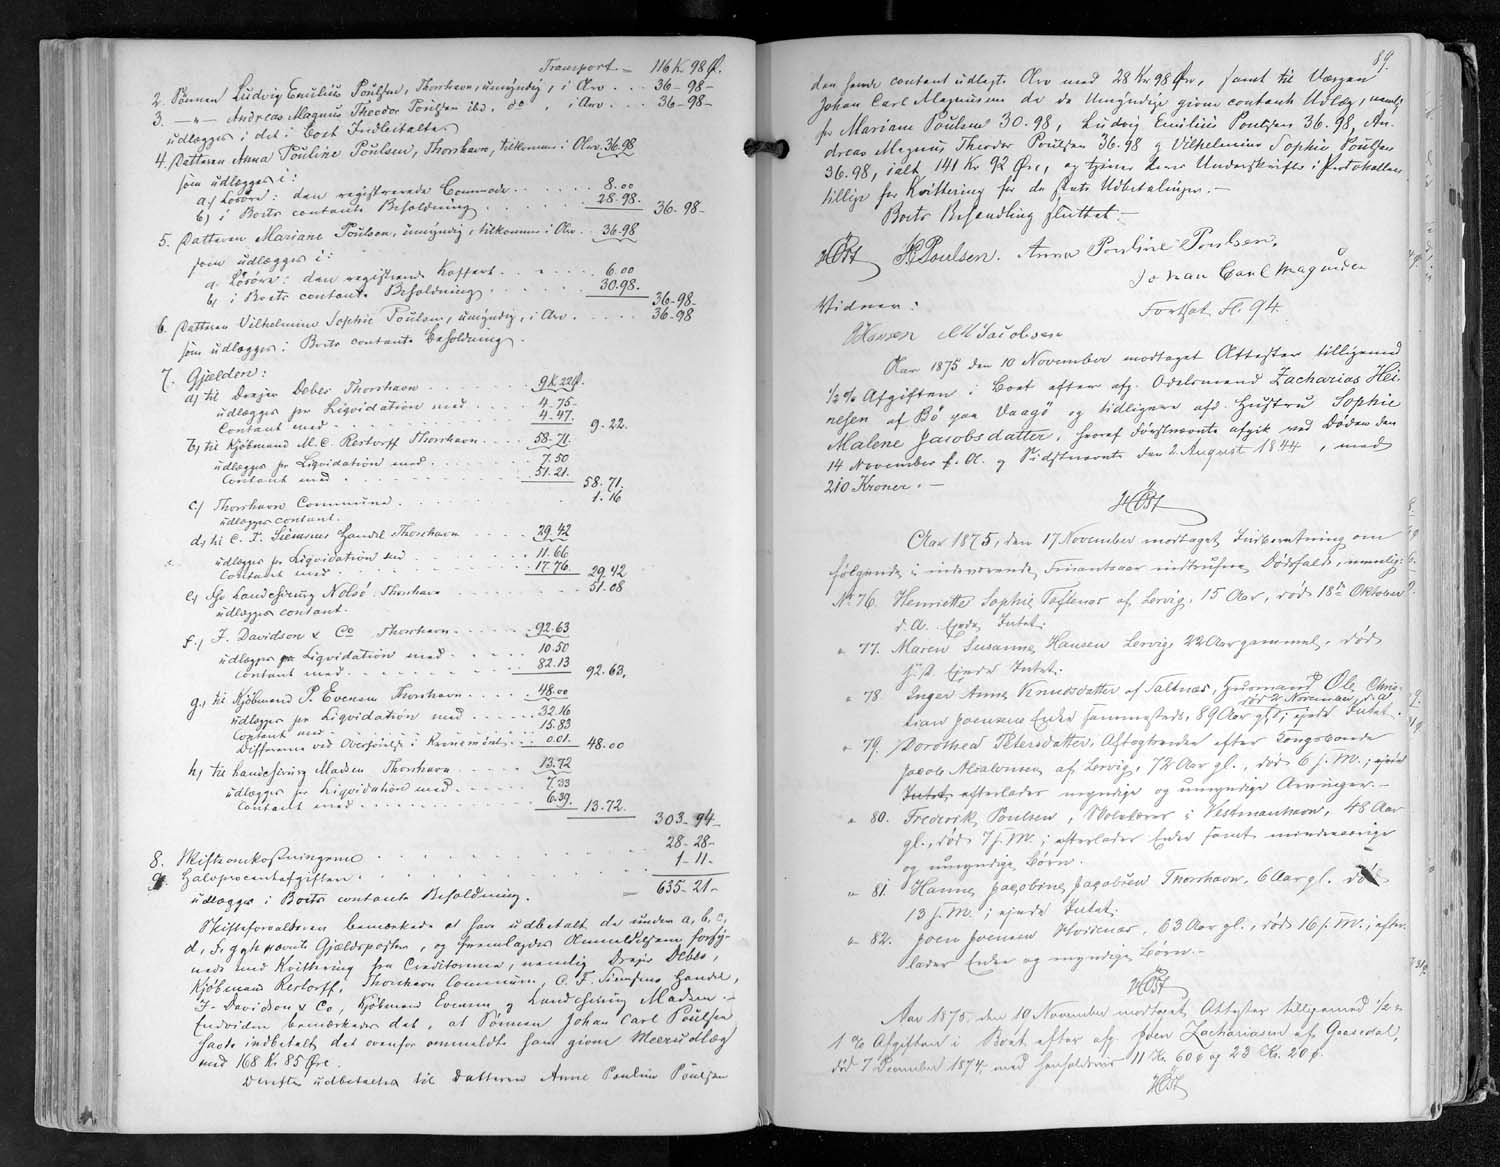 Transport = 116 Kr. 98 Ø.
2. Sønnen Ludvig Emilius Poulsen, Thorshavn, umyndig, i Arv . . . 36-98-
3. — " — Andreas Magnus Theodor Poulsen ibd. do , i Arv . . . 36-98-
udlægges i det i Boet Indbetalte.
4. Datteren Anna Pouline Poulsen, Thorshavn, tilkommer i Arv. 36.98
som udlægges i:
a) Løsøre: den registrerede Commode . . . . . 8.00
b) i Boets contante Beholdning . . . . . 28.98. 36-98-
5. Datteren Mariane Poulsen, umyndig, tilkommer i Arv. 36.98
som udlægges i:
a. Løsøre: den registrerede Koffert . . . . . 6.00
b) i Boets contante Beholdning . . . . . 30.98. 36-98-
6. Datteren Vilhelmine Sophie Poulsen, umyndig, i Arv . . . . 36-98
som udlægges i Boets contante Beholdning.
7. Gjælden:
a) til Drejer Debes Thorshavn . . . . . 9 K. 22 Ø.
udlægges pr Liqvidation med . . . . 4-75-
Contant med . . . . . 4-47. 9.22.
b) til Kjøbmand M. C. Restorff Thorshavn . . . 58-71.
udlægges pr Liqvidation med . . . . . 7.50
Contant med . . . . . 51.21. 58.71.
c) Thorshavn Commune . . . . . 1.16
udlægges contant.
d) til C. F. Siemsens Handel Thorshavn . . . . 29.42
udlægges pr Liqvidation med . . . . 11.66
Contant med . . . . . 17.76. 29.42
e) Landchirurg Nolsø Thorshavn . . . . 51.08
udlægges contant.
f.) J. Davidson & Co Thorshavn . . . . 92.63
udlægges pr Liqvidation med . . . . 10.50
Contant med . . . . . 82.13 92.63.
g.) til Kjøbmand P. Evensen Thorshavn . . . . 48.00
udlægges pr Liqvidation med . . . . 32.16
Contant med . . . . . 15.83
Difference ved Overførelse i . . . 0.01. 48.00
h) til Landchirurg Madsen Thorshavn . . . . 13.72
udlægges pr Liqvidation med . . . . 7.33
Contant med . . . . . 6.39. 13.72.
303-94-
8. Skifteomkostningerne . . . . . 28-28-
9. Halvprocentafgiften . . . . . 1-11-
udlægges i Boets contante Beholdning. = 635-21-
Skifteforvalteren bemærkede at have udbetalt de under a, b, c,
d, f, g, h nævnte Gjældsposter, og fremlagdes Anmeldelserne forsy-
nede med Kvittering fra Creditorerne, nemlig Drejer Debes,
Kjøbmand Restorff, Thorshavn Commune, C. F. Siemsens Handel,
J. Davidson & Co, Kjøbmand Evensen og Landchirurg Madsen.-
Endvidere bemærkedes det, at Sønnen Johan Carl Poulsen
havde indbetalt det ovenfor ommeldte ham givne Meerudlæg
med 168 Kr 85 Øre.
Derefter udbetaltes til Datteren Anne Pouline Poulsen
89.
den hende contant udlagte Arv med 28 Kr 98 Øre, samt til Værgen
Johan Carl Magnussen de de Umyndige givne contante Udlæg, nemlig
for Mariane Poulsen 30.98, Ludvig Emilius Poulsen 36.98, An-
dreas Magnus Theodor Poulsen 36.98 og Vilhelmine Sophie Poulsen
36.98, ialt 141 Kr 92 Øre, og tjener deres Underskrifter i Protokollen
tillige for Kvittering for de skete Udbetalinger.-
Boets Behandling sluttet.-
HØst Poulsen. Anna Pouline Poulsen.
Johan Carl Magnusen
Vidner: Fortsat fl. 94.
Hansen Jacobsen
Aar 1875 den 10 November modtaget Attester tilligemed
½ % Afgiften i Boet efter afg. Odelsmand Zacharias Hei-
nesen af Bø paa Vaagø og tidligere afd. Hustru Sophie
Malene Jacobsdatter, hvoraf Førstnævnte afgik ved Døden den
14 November f. A. og Sidstnævnte den 2 August 1844, med
210 Kroner.-
HØst
Aar 1875, den 17 November modtaget Indberetning om
følgende i indeværende Finantsaar indtrufne Dødsfald, nemlig:
No 76. Henriette Sophie Toftenæs af Lervig, 15 Aar, død 18de Oktober
d. A. Ejede Intet.
" 77. Maren Susanne Hansen Lervig, 22 Aar gammel, død
s. st. Ejede Intet.
" 78. Inger Anne Knudsdatter af Saltnæs, Husmand Ole Chris-
død 2 November d. A.
tian Joensens Enke sammesteds, 89 Aar gl., ejede Intet.
" 79. Dorothea Petersdatter, Aftægtsenke efter Kongsbonde
Jacob Absalonsen af Lervig, 72 Aar gl., død 6 s. M.; ejede
Intet, efterlader myndige og umyndige Arvinger.-
" 80. Frederik Poulsen, Skolelærer i Vestmanhavn, 48 Aar
gl., død 7 s. M.; efterlader Enke samt mindreaarige
og umyndige Børn.
" 81. Hanne Jacobine Jacobsen Thorshavn, 6 Aar gl. død
13 s. M.; ejede Intet.
" 82. Joen Joensen Hvidenæs, 63 Aar gl., død 16 s. M.; efter-
lader Enke og myndige Børn.-
HØst
Aar 1875, den 10 November modtaget Attester tilligemed ½ &
1 % Afgiften i Boet efter afg. Joen Zachariasen af Gaasedal,
død 7 December 1874, med henholdsvis 11 Kr. 60 ø og 23 Kr. 20 ø.
HØst